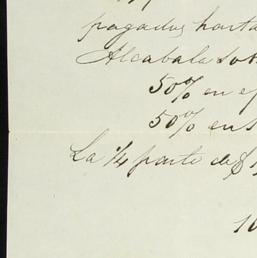 pagadus hasta
Alcabala so
50% en ef
50% en
La 1/4 parte de $
10